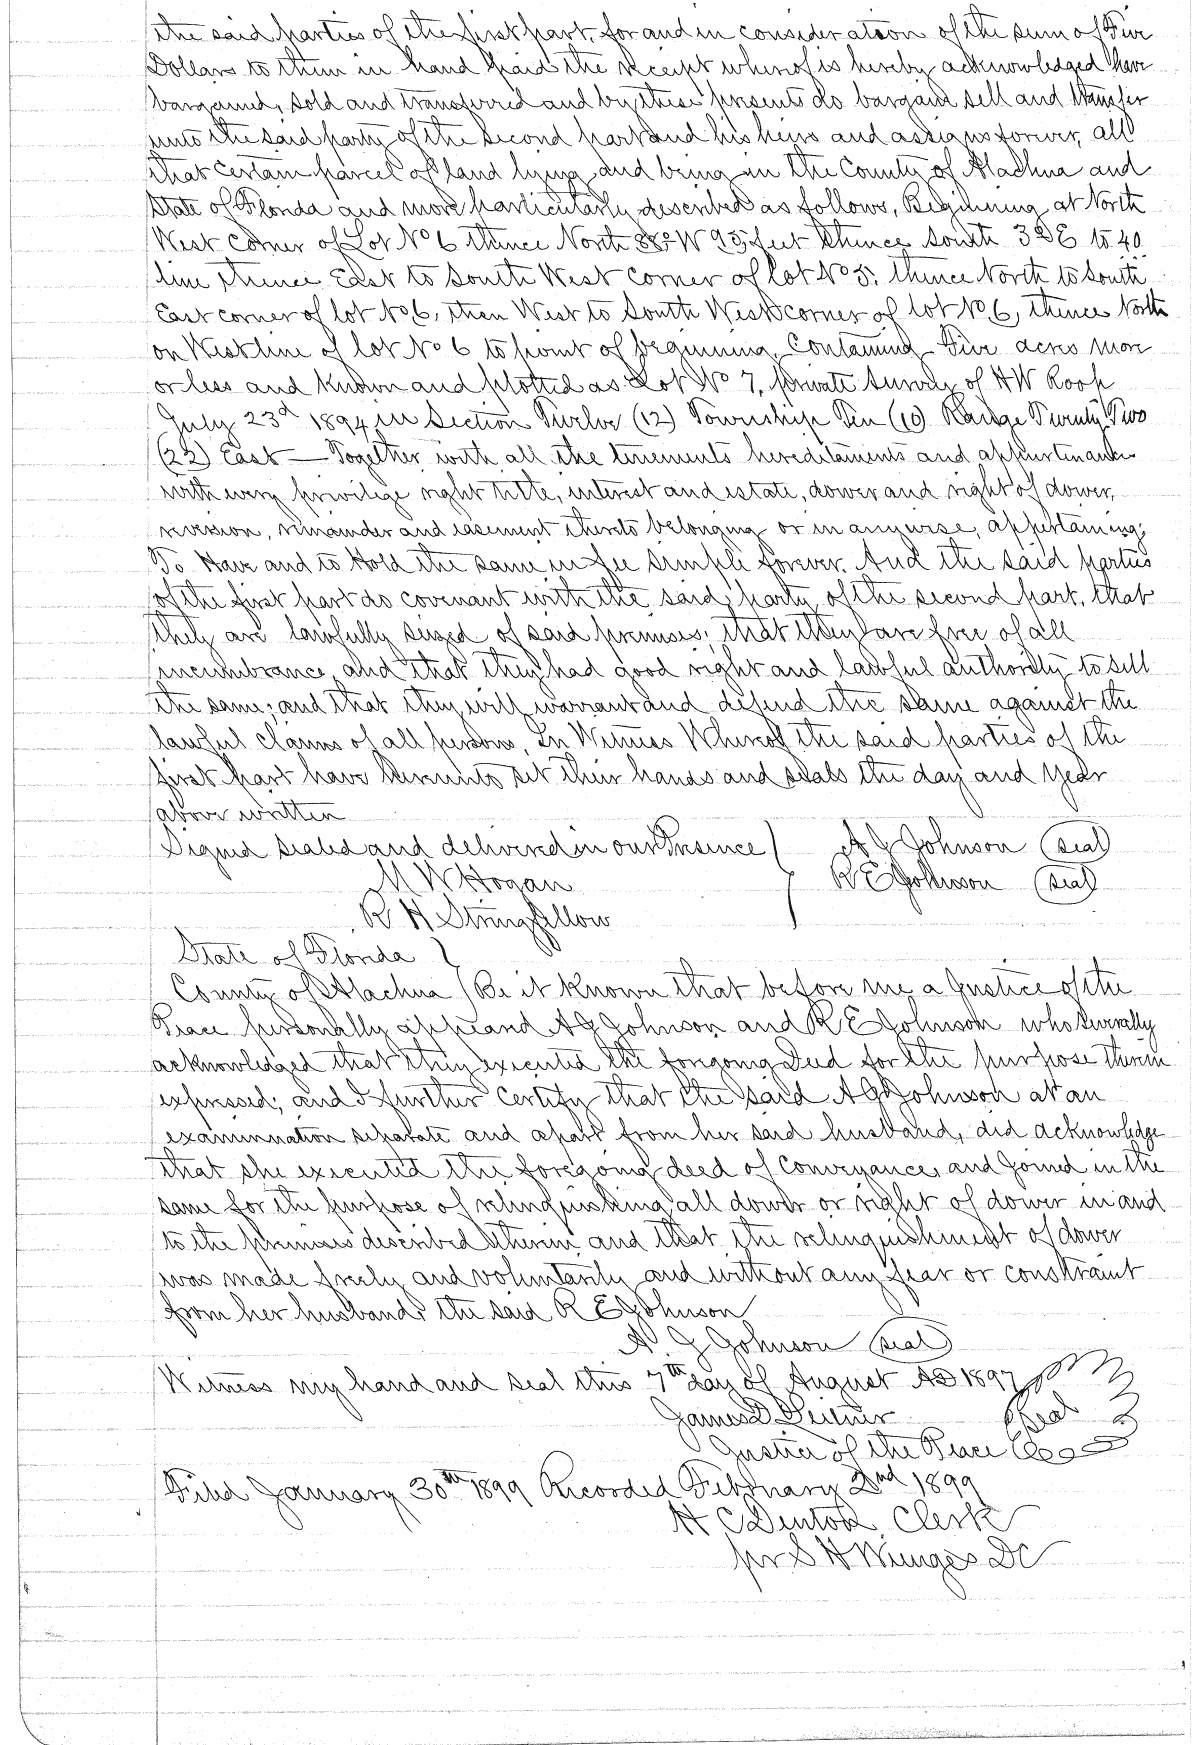 the said parties of the first part, for and in consideration of the sum of Five
Dollars to them in hand paid the receipt whereof is hereby acknowledged have
bargained, sold and transferred and by these presents do bargain sell and transfer
unto the said party of the second part and his heirs and assigns forever, all
that certain parcel of land lying and being in the County of Alachua and
State of Florida and more particularly described as follows, Beginning at North
West corner of Lot No 6 thence North 88° W 95 feet thence South 3° E to 40
line thence East to South West corner of lot No 5. thence North to South
East corner of lot No 6, then West to South West corner of lot No 6, thence North
on West line of lot No 6 to point of beginning, Containing Five acres more
or less and known and plotted as Lot No 7, private survey of H W Roop
July 23d 1894 in Section Twelve (12) Township Ten (10) Range Twenty Two
(22) East — Together with all the tenements hereditaments and appurtenances
with every privilege right title, interest and estate, dower and right of dower,
revision, remainder and easement thereto belonging or in anywise, appertaining;
To Have and to Hold the same in fee simple forever. And the said parties
of the first part do covenant with the said party of the second part, that
they are lawfully seized of said premises; that they are free of all
incumbrance, and that they had good right and lawful authority to sell
the same; and that they will warrant and defend the same against the
lawful claims of all persons, In Witness Whereof the said parties of the
first part have hereunto set their hands and seals the day and year
above written
Signed sealed and delivered in our Presence } A G Johnson (seal)
M W Hogan R E Johnson (seal)
R H Stringfellow
State of Florida }
County of Alachua } Be it Known that before me a Justice of the
Peace personally appeared A G Johnson and R E Johnson who severally
acknowledged that they executed the forgoing Deed for the purpose therein
expressed; and I further certify that the said A G Johnson at an
examinnation separate and apart from her said husband, did acknowledge
that she executed the foregoing deed of conveyance, and joined in the
same for the purpose of relinquishing all dower or right of dower in and
to the premises described therein and that the relinquishment of dower
was made freely and voluntarily and without any fear or constraint
from her husband, the said R E Johnson
A. G Johnson (seal)
Witness my hand and seal this 7th day of August AD 1897
James D Leitner Seal
Justice of the Peace
Filed January 30th 1899 Recorded February 2nd 1899
H C Denton Clerk
pr S H Wienges DC